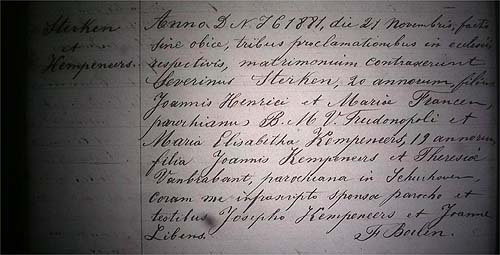 Sterken
et
Kempeneers.
Anno D N J C 1881, die 21 Novembris, factis
sine obice, tribus proclamationibus in ecclesiis
respectivis, matrimonium contraxerunt
Severinus Sterken, 20 annorum, filius
Joannis Henrici et Mariæ Francen,
parochianus B. M. V. Trudonopoli et
Maria Elisabetha Kempeneers, 19 annorum,
filia Joannis Kempeneers et Theresiæ
Vanbrabant, parochiana in
coram me infrascripto sponsæ parocho et
testibus Josepho Kempeneers et Joanne
Libens.